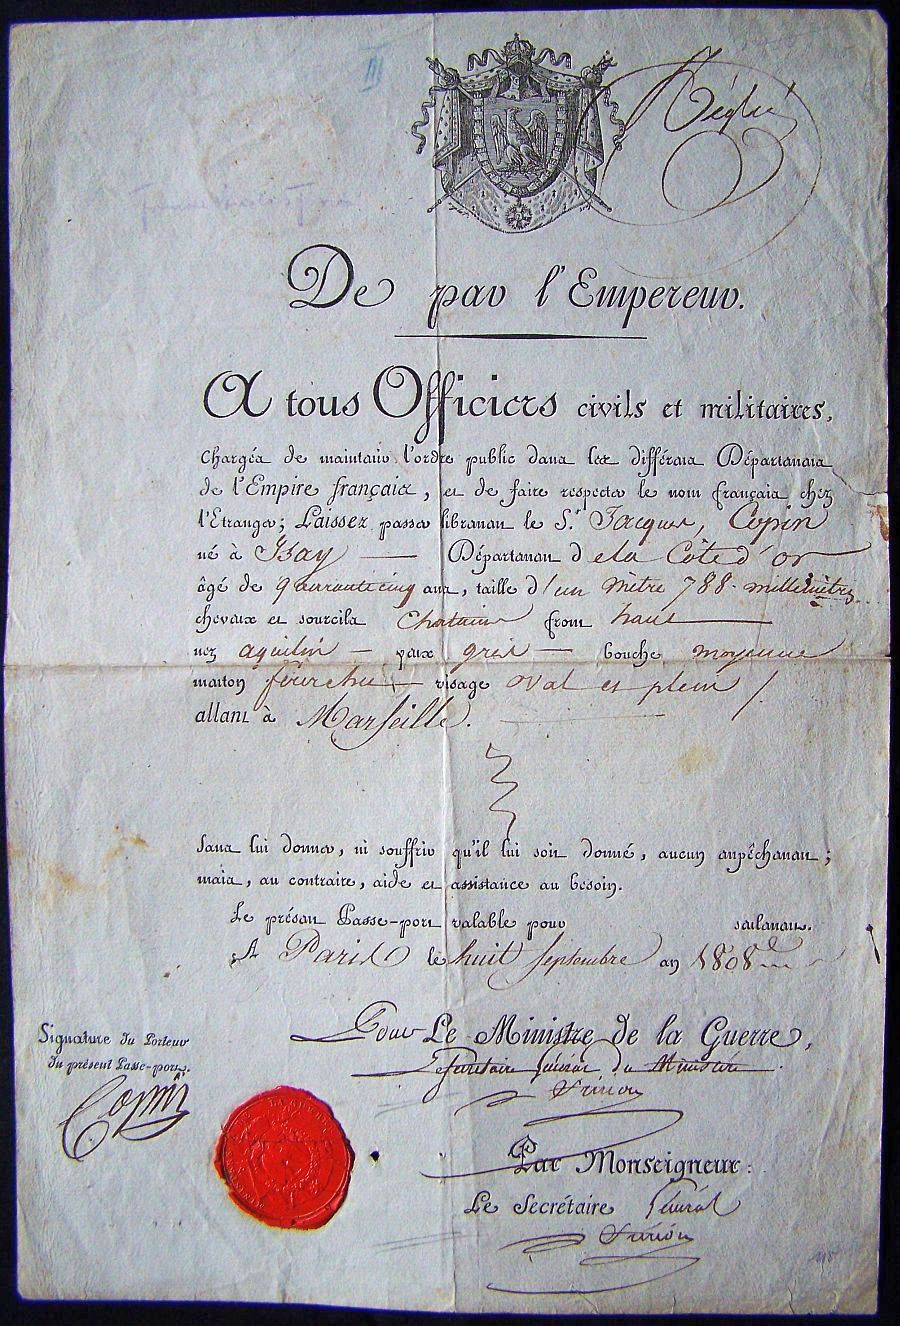 III
De par l'Empereur.
A tous Officiers civils et militaires,
chargés de maintenir l'ordre public dans les différens Départemens
de l'Empire français, et de faire respecter le nom français chez
l'Etranger; Laissez passer librement le S.r Jacques, Copin
né à Isay — Département de la Côte d'or
âgé de quarante cinq ans, taille d'un mètre 788 millimètres
cheveux et sourcils chatains front haut
nez aquilin — yeux gris — bouche moyenne
menton fourchu — visage oval et plein
allant à Marseille.
Sans lui donner, ni souffrir qu'il lui soit donné, aucun empêchement;
mais, au contraire, aide et assistance au besoin.
Le présent Passe-port valable pour seulement.
A Paris le huit Septembre an 1808
Pour Le Ministre de la Guerre,
Le Secrétaire Général du Ministère
Signature du Porteur
du présent Passe-port.
Copin
Par Monseigneur:
Le Secrétaire Général